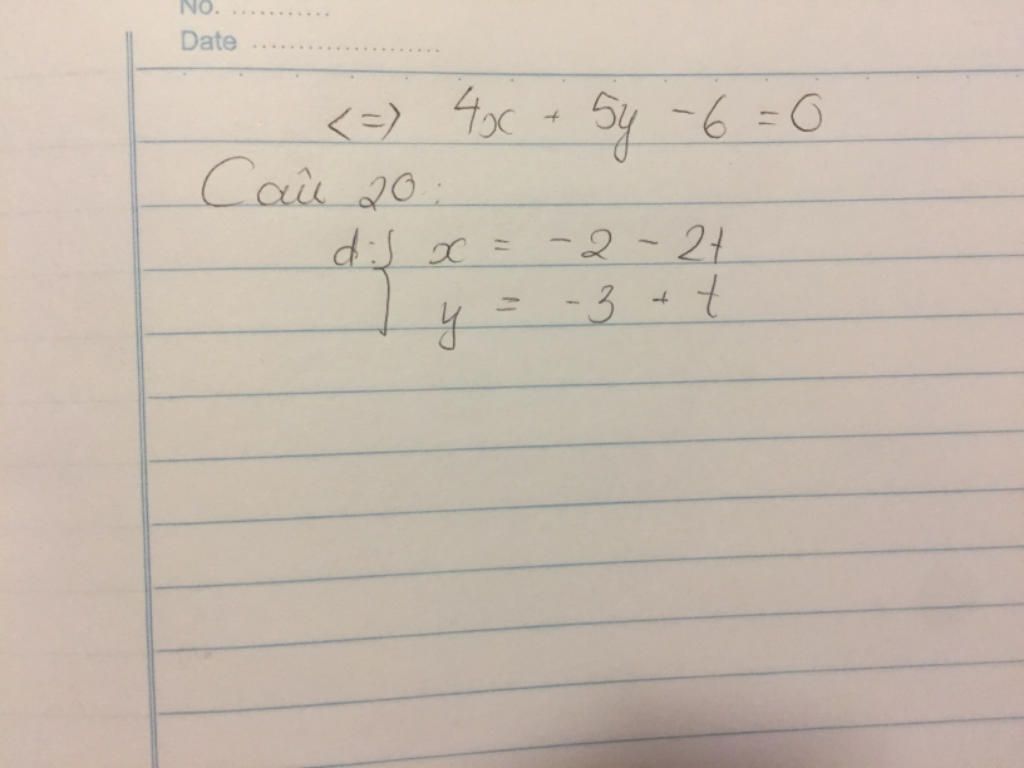 No. ............
Date ......................
<=> 4x + 5y - 6 = 0
Câu 20:
d: { x = -2 - 2t
y = -3 + t